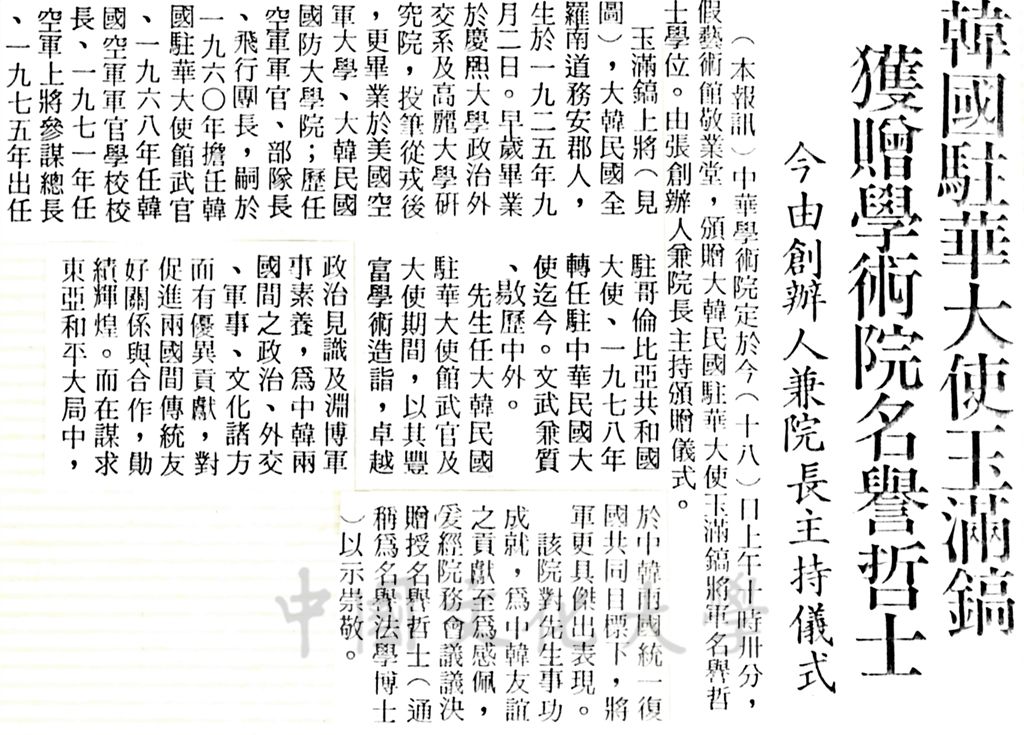 韓國駐華大使玉滿鎬
獲贈學術院名譽哲士
今由創辦人兼院長主持儀式
（本報訊）中華學術院定於今（十八）日上午十時卅分，
假藝術館敬業堂，頒贈大韓民國駐華大使玉滿鎬將軍名譽哲
士學位。由張創辦人兼院長主持頒贈儀式。
玉滿鎬上將（見
圖），大韓民國全
羅南道務安郡人，
生於一九二五年九
月二日。早歲畢業
於慶熙大學政治外
交系及高麗大學研
究院，投筆從戎後
，更畢業於美國空
軍大學、大韓民國
國防大學院；歷任
空軍軍官、部隊長
、飛行團長，嗣於
一九六〇年擔任韓
國駐華大使館武官
、一九六八年任韓
國空軍軍官學校校
長、一九七一年任
空軍上將參謀總長
、一九七五年出任
駐哥倫比亞共和國
大使、一九七八年
轉任駐中華民國大
使迄今。文武兼質
、敭歷中外。
先生任大韓民國
駐華大使館武官及
大使期間，以其豐
富學術造詣，卓越
政治見識及淵博軍
事素養，為中韓兩
國間之政治、外交
、軍事、文化諸方
面有優異貢獻，對
促進兩國間傳統友
好關係與合作，勛
績輝煌。而在謀求
東亞和平大局中，
於中韓兩國統一復
國共同目標下，將
軍更具傑出表現。
該院對先生事功
成就，為中韓友誼
之貢獻至為感佩，
爰經院務會議議決
贈授名譽哲士（通
稱為名譽法學博士
）以示崇敬。
中國文化大學